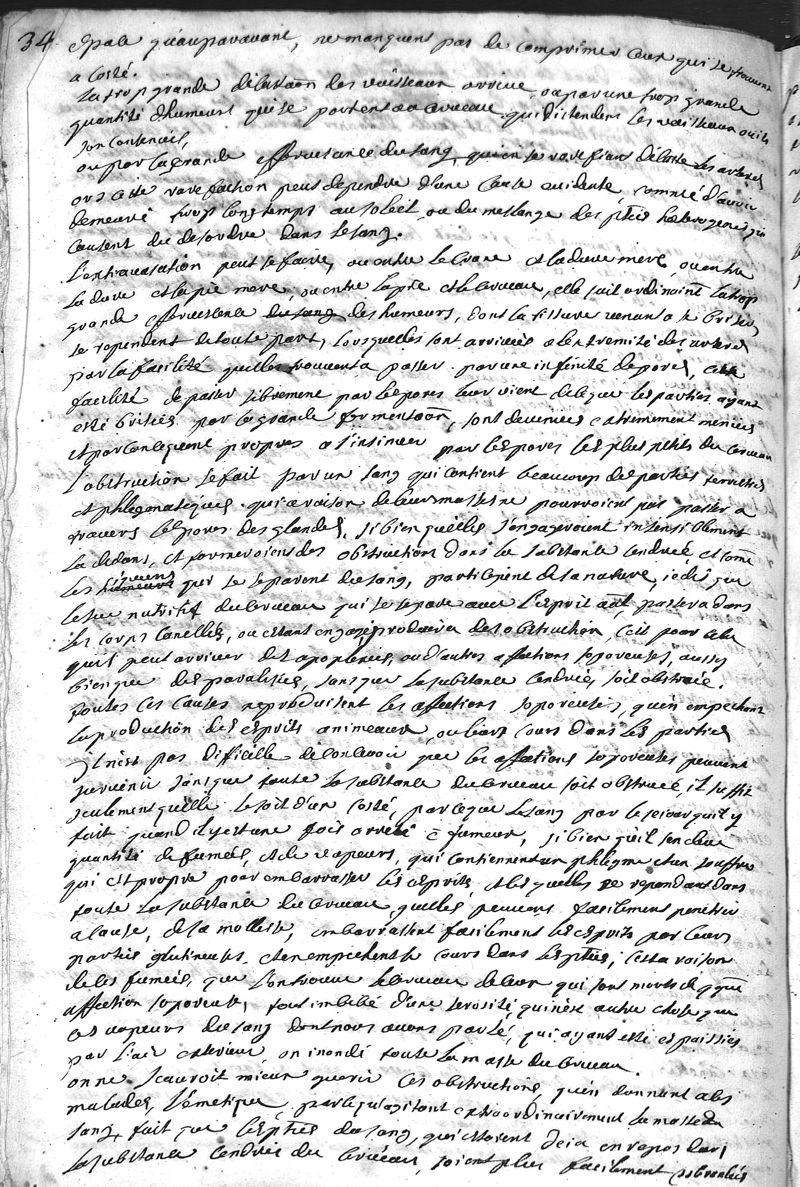 34 espace qu'auparavant, ne manquent pas de comprimer ceux qui se trouvent
a costé.
La trop grande dilataõn des vaisseaux arrive, ou par une trop grande
quantité d'humeurs qui se portent au cerveau qui distendent les vaisseaux ou ils
son contenues,
ou par la grande effervescence du sang, qui en se rarefiant dilate les arteres
ors cette rarefaction peut dependre d'une cause evidente, comme d'avoir
demeuré trop longtemps au soleil, ou du meslange des pties heterogenes qui
causent du desordre dans le sang.
L'extravasation peut se faire, ou entre le crane et la dure mere, ou entre
la dure et la pie mere, ou entre la pie et le cerveau, elle suit ordinairemt la trop
grande effervescence du sang des humeurs, dont la tissure venant a se briser,
se repandent de toute part, lorsquelles sont arrivées a l'extremité des arteres
par la facilité quelles trouvent a passer par une infinité de pores, cette
facilité de passer librement par les pores leur vient de ce que les parties ayant
esté brisées par la grande fermentaõn, sont devenues extrememement menues
et par consequent propres a s'insinuer par les pores les plus petits du cerveau
L'obstruction se fait par un sang qui contient beaucoup de parties terrestres
et phlegmatiques qui a raison de leur masse ne pourroient pas passer a
travers les pores des glandes, si bien qu'elles s'engageroient insensiblement
la dedans, et formeroient des obstructions dans la substance cendrée et come
les liqueurs qui se separent du sang, participent de sa nature, icelui que
le suc nutritif du cerveau qui se separe avec l'esprit aãl, passera dans
les corps canellés, ou estant engagé produira des obstruction, c'est pour cela
qu'il peut arriver des apoplexies, ou d'autres affections soporeuses, aussy
bien que des paralisies, sans que la substance cendrée, soit obstruée.
Toutes ces causes ne produisent les affections soporeuses, qu'en empechant
la production des esprits animeaux, ou leurs cours dans les parties
Il n'est pas difficille de concevoir que les affections soporeuses peuvent
survenir sans que toute la substance du cerveau soit obstruée, il suffit
seulement qu'elle le soit d'un costé, parceque le sang par le sejour qu'il y
fait quand il y est une fois arresté fumeux, si bien qu'il s'en eleve
quantité de fumées, et de vapeurs, qui contiennent un phlegme et un souffre
qui est propre pour embarrasser les esprits, et les quelles se repandant dans
toute la substance du cerveau, quelles peuvent facilement penetrer
a cause, de sa mollesse, embarrassent facilement les esprits par leurs
parties glutineuses, et en empechent le cours dans les pties, c'est a raison
de ces fumées, que l'on trouve le cerveau de ceux qui sont morts de qque
affection soporeuse, tout imbibé d'une serosité qui n'est autre chose que
ces vapeurs du sang dont nous avons parlé, qui ayant esté espaissies
par l'air exterieur, on inondé toute la masse du cerveau.
On ne scauroit mieux guerir ces obstructions, qu'en donnant a ces
malades, l'emetique, parce qu'agitant extraordinairement la masse du
sang, fait que les pties du sang, qui estoient deia en repos dans
la substance cendrée du cerveau, soient plus facilement esbranlées